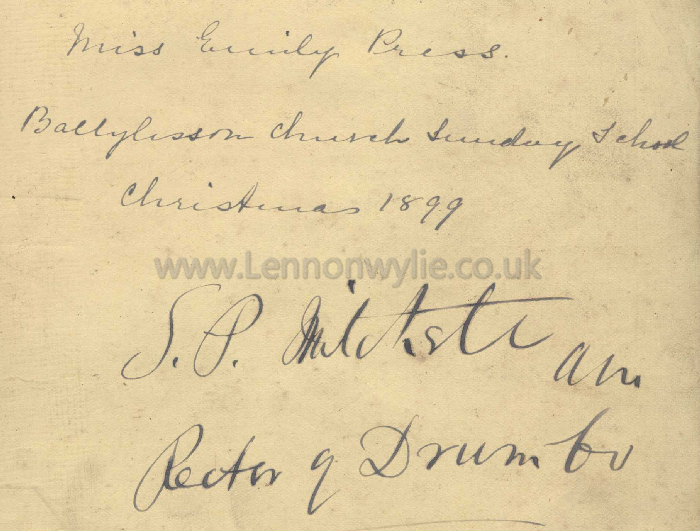 Miss Emily Press.
Ballylesson Church Sunday School
Christmas 1899
www.Lennonwylie.co.uk
S. P. Mitchell AM
Rector of Drumbo